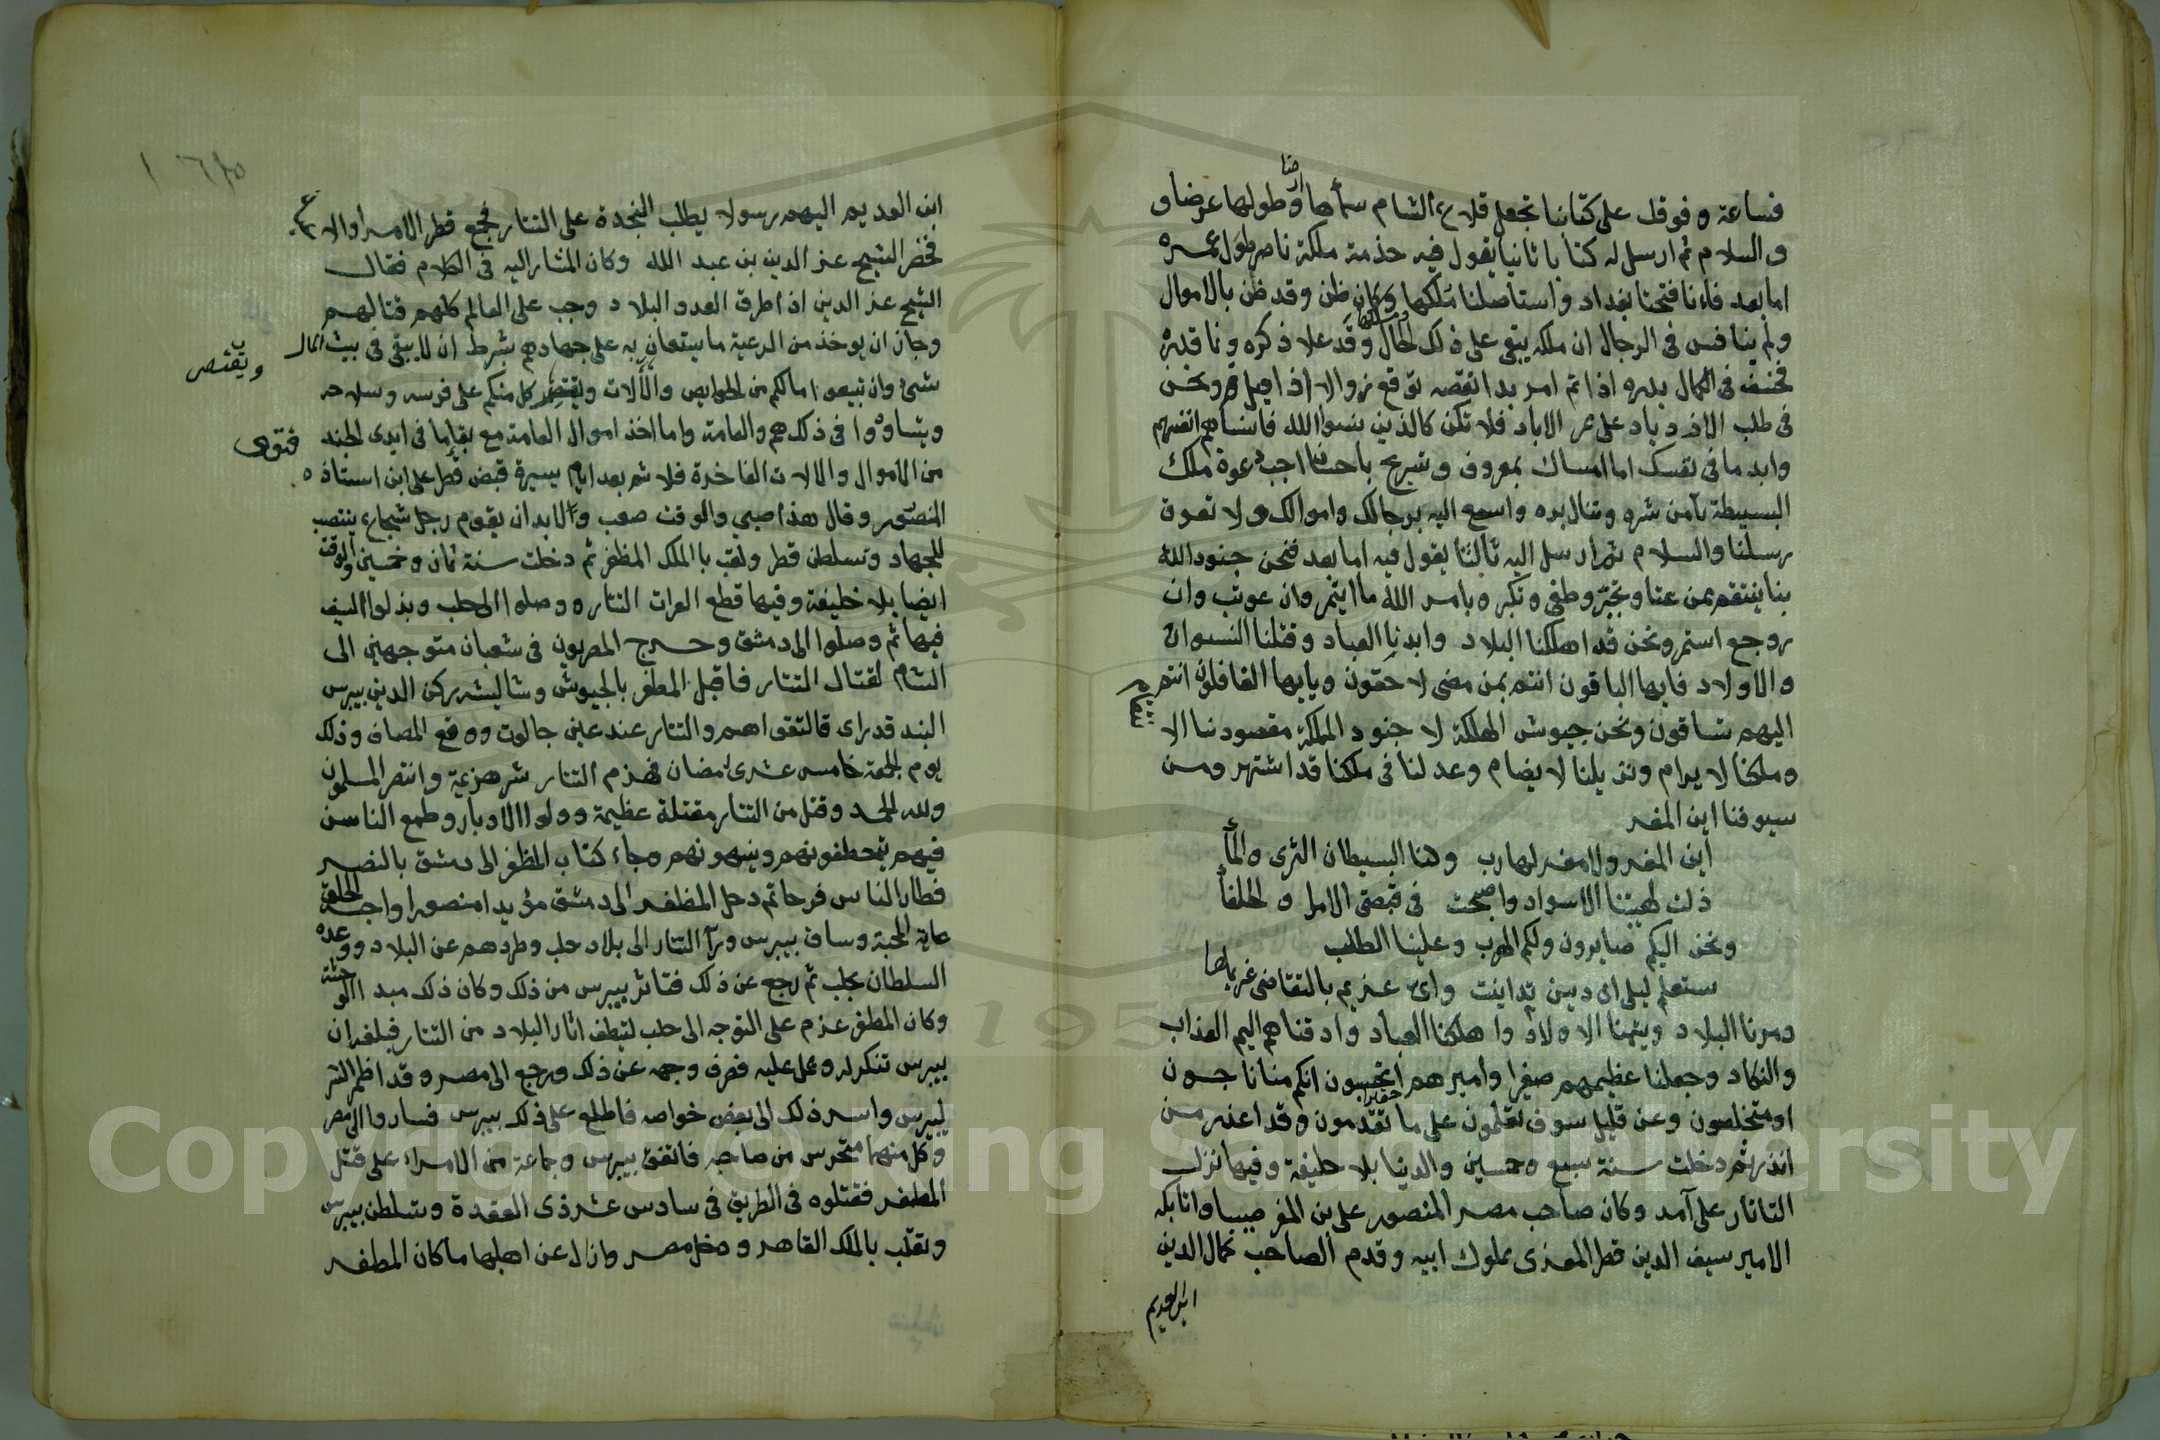 فساعة وقوفك على كتابنا تجعل قلاع الشام سمأها أرضا وطولها عرضا و
والسلام ثم ارسل له كتابا ثانيا يقول فيه حذمة ملكة ناصر طول عمره
اما بعد فاءنا فتحنا بغداد واستاصلنا ملكها وملكها وكان ظن وقد ظن بالاموال
ولم ينافس فى الرجال ان ملكه يبقى على ذلك الحال وقد علا ذكره ونما قدره
فخسف فى الكمال بدره اذا تم امر بدا نقصه توقع زوالا اذا قيل تم ونحن
فى طلب الازدياد على ممر الاباد فلا تكن كالذين نسوا الله فانساهم انفسهم
وابد ما فى نفسك اما امساك بمعروف وتسريح باحسان اجب دعوة ملك
البسيطة تأمن شره وتنال بره واسع اليه برجالك واموالك ولا تعوق
رسلنا والسلام ثم ارسل اليه ثالثا يقول فيه اما بعد فنحن جنود الله
بنا ينتقم ممن عتا وتجبر وطغى وتكبر وبامر الله ما ايتمر وان عوتب وان
روجع استمر ونحن قد اهلكنا البلاد وابدنا العباد وقتلنا النسوان
والاولاد فايها الباقون انتم بمن مضى لاحقون ويايها الغافلون انتم
اليهم تساقون ونحن جيوش الهلكة لا جنود المملكة مقصودنا الا
نتقام
وملكنا لا يرام ونزيلنا لا يضام وعدلنا فى ملكنا قد اشتهر ومن
سيوفنا اين المفر
أين المفر ولا مفر لهارب ولنا البسيطان الثرى والمأ
ذلت لهيبتنا الاسود واصبحت فى قبضتى الامرا والخلفأ
ونحن اليكم صايرون ولكم الهرب وعلينا الطلب
ستعلم ليلى اى دين تداينت واى غريم بالتقاضى غريمها
دمرنا البلاد ويتمنا الاولاد واهلكنا العباد وادقناهم اليم العذاب
والنكاد وجعلنا عظيمهم صغيرا وأميرهم حقيرا أتحسبون انكم منا ناجون
او متخلصون وعن قليل سوف تعلمون على ما تقدمون وقد اعذر من
انذر ثم دخلت سنة سبع وخمسين والدنيا بلا خليفة وفيها نزل
التاتار على آمد وكان صاحب مصر المنصور على بن المعز صبيا واتابكه
الامير سيف الدين قطز المعزى مملوك ابيه وقدم الصاحب كمال الدين
ابن العديم
ابن العديم اليهم رسولا يطلب النجدة على التتار فجمع قطز الامرأ والا
فحضر الشيخ عز الدين بن عبد الله وكان المشار اليه فى الكلام فقال
الشيخ عز الدين اذا طرق العدو البلاد وجب على العالم كلهم قتالهم
وجاز ان يوخذ من الرعية ما يستعان به على جهادهم بشرط ان لا يبقى فى بيت المال
شئ وان تبيعوا مالكم من الحوايص والألات ويقتصر كل منكم على فرسه وسلاحه
ويقتصر
ويتساووا فى ذلك هم والعامة واما اخذ اموال العامة مع بقإما فى ايدى الجند
فتوى
من الاموال والالات الفاخرة فلا ثم بعد ايام يسيرة قبض قطز على ابن استاذه
المنصور وقال هذا صبى والوقت صعب ولابد ان يقوم رجل شجاع ينتصب
للجهاد وتسلطن قطز ولقب بالملك المظفر ثم دخلت سنة ثمان وخمسين والوقت
ايضا بلا خليفة وفيها قطع الفرات التتاره ووصلوا الى حلب وبذلوا السيف
فيها ثم وصلوا الى دمشق وخرج المصريون فى شعبان متوجهين الى
الشام لقتال التتار فاقبل المظفر بالجيوش وشاليشه ركن الدين بيبرس
البندقدراى فالتقواهم والتتار عند عين جالوت ووقع المصاف وذلك
يوم الجمعة خامس عشرى رمضان فهزم التتار شر هزيمة وانتصر المسلمون
ولله الحمد وقتل من التتار مقتلة عظيمة وولوا الادبار وطمع الناس
فيهم يتخطفونهم وينهبونهم وجاء كتاب المظفر الى دمشق بالنصر
فطار الناس فرحا ثم دخل المظفر الى دمشق مؤيدا منصورا واحبه الخلق
غاية المحبة وساق بيبرس ورآ التتار الى بلاد حلب وطردهم عن البلاد ووعده
السلطان بحلب ثم رجع عن ذلك فتاثر بيبرس من ذلك وكان ذلك مبدا الوحشة
وكان المظفر عزم على التوجه الى حلب لينظف اثار البلاد من التتار فبلغه ان
بيبرس تنكر له وعمل عليه فصرف وجهه عن ذلك ورجع الى مصر وقد اظمر الشر
لبيبرس واسر ذلك الى بعض خواصه فاطلع على ذلك بيبرس فساروا الى مصر
وكل منهما متحرس من صاحبه فاتفق بيبرس وجماعة من الامراء على قتل
المظفر فقتلوه فى الطريق فى سادس عشر ذى القعدة وتسلطن بيبرس
وتقلب بالملك القاهر ودخل مصر وازال عن اهلها ما كان المظفر
1957
Copyright © King Saud University